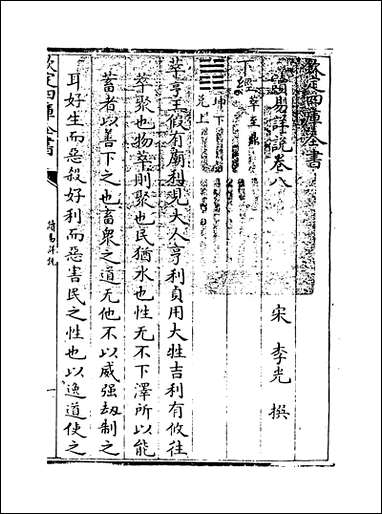 欽定四庫全書
讀易詳說卷八
宋 李光 撰
下經 萃至鼎
坤下
兌上
萃亨王假有廟利見大人亨利貞用大牲吉利有攸往
萃聚也物萃則聚也民猶水也性无不下澤所以能
蓄者以善下之也畜衆之道无他不以威强劫制之
耳好生而惡殺好利而惡害民之性也以逸道使之
欽定四庫全書
讀易詳說
一